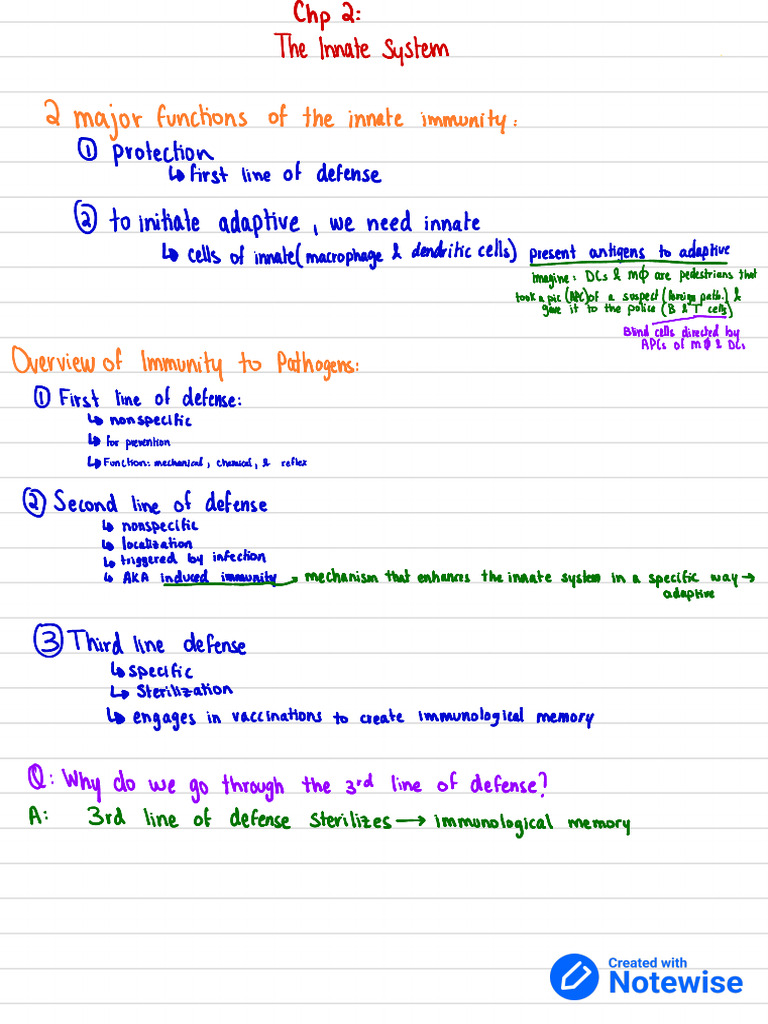 Chp 2:
The Innate System
2 major functions of the innate immunity:
① protection
↳ first line of defense
② to initiate adaptive, we need innate
↳ cells of innate (macrophage & dendritic cells) present antigens to adaptive
imagine: DCs & mØ are pedestrians that
took a pic (APC) of a suspect (foreign path.) &
gave it to the police (B & T cells)
Blind cells directed by
APCs of MØ & DCs
Overview of Immunity to Pathogens:
① First line of defense:
↳ nonspecific
↳ for prevention
↳ Function: mechanical, chemical, & reflex
② Second line of defense
↳ nonspecific
↳ localization
↳ triggered by infection
↳ AKA induced immunity → mechanism that enhances the innate system in a specific way →
adaptive
③ Third line defense
↳ specific
↳ Sterilization
↳ engages in vaccinations to create immunological memory
Q: Why do we go through the 3rd line of defense?
A: 3rd line of defense sterilizes → immunological memory
Created with
Notewise